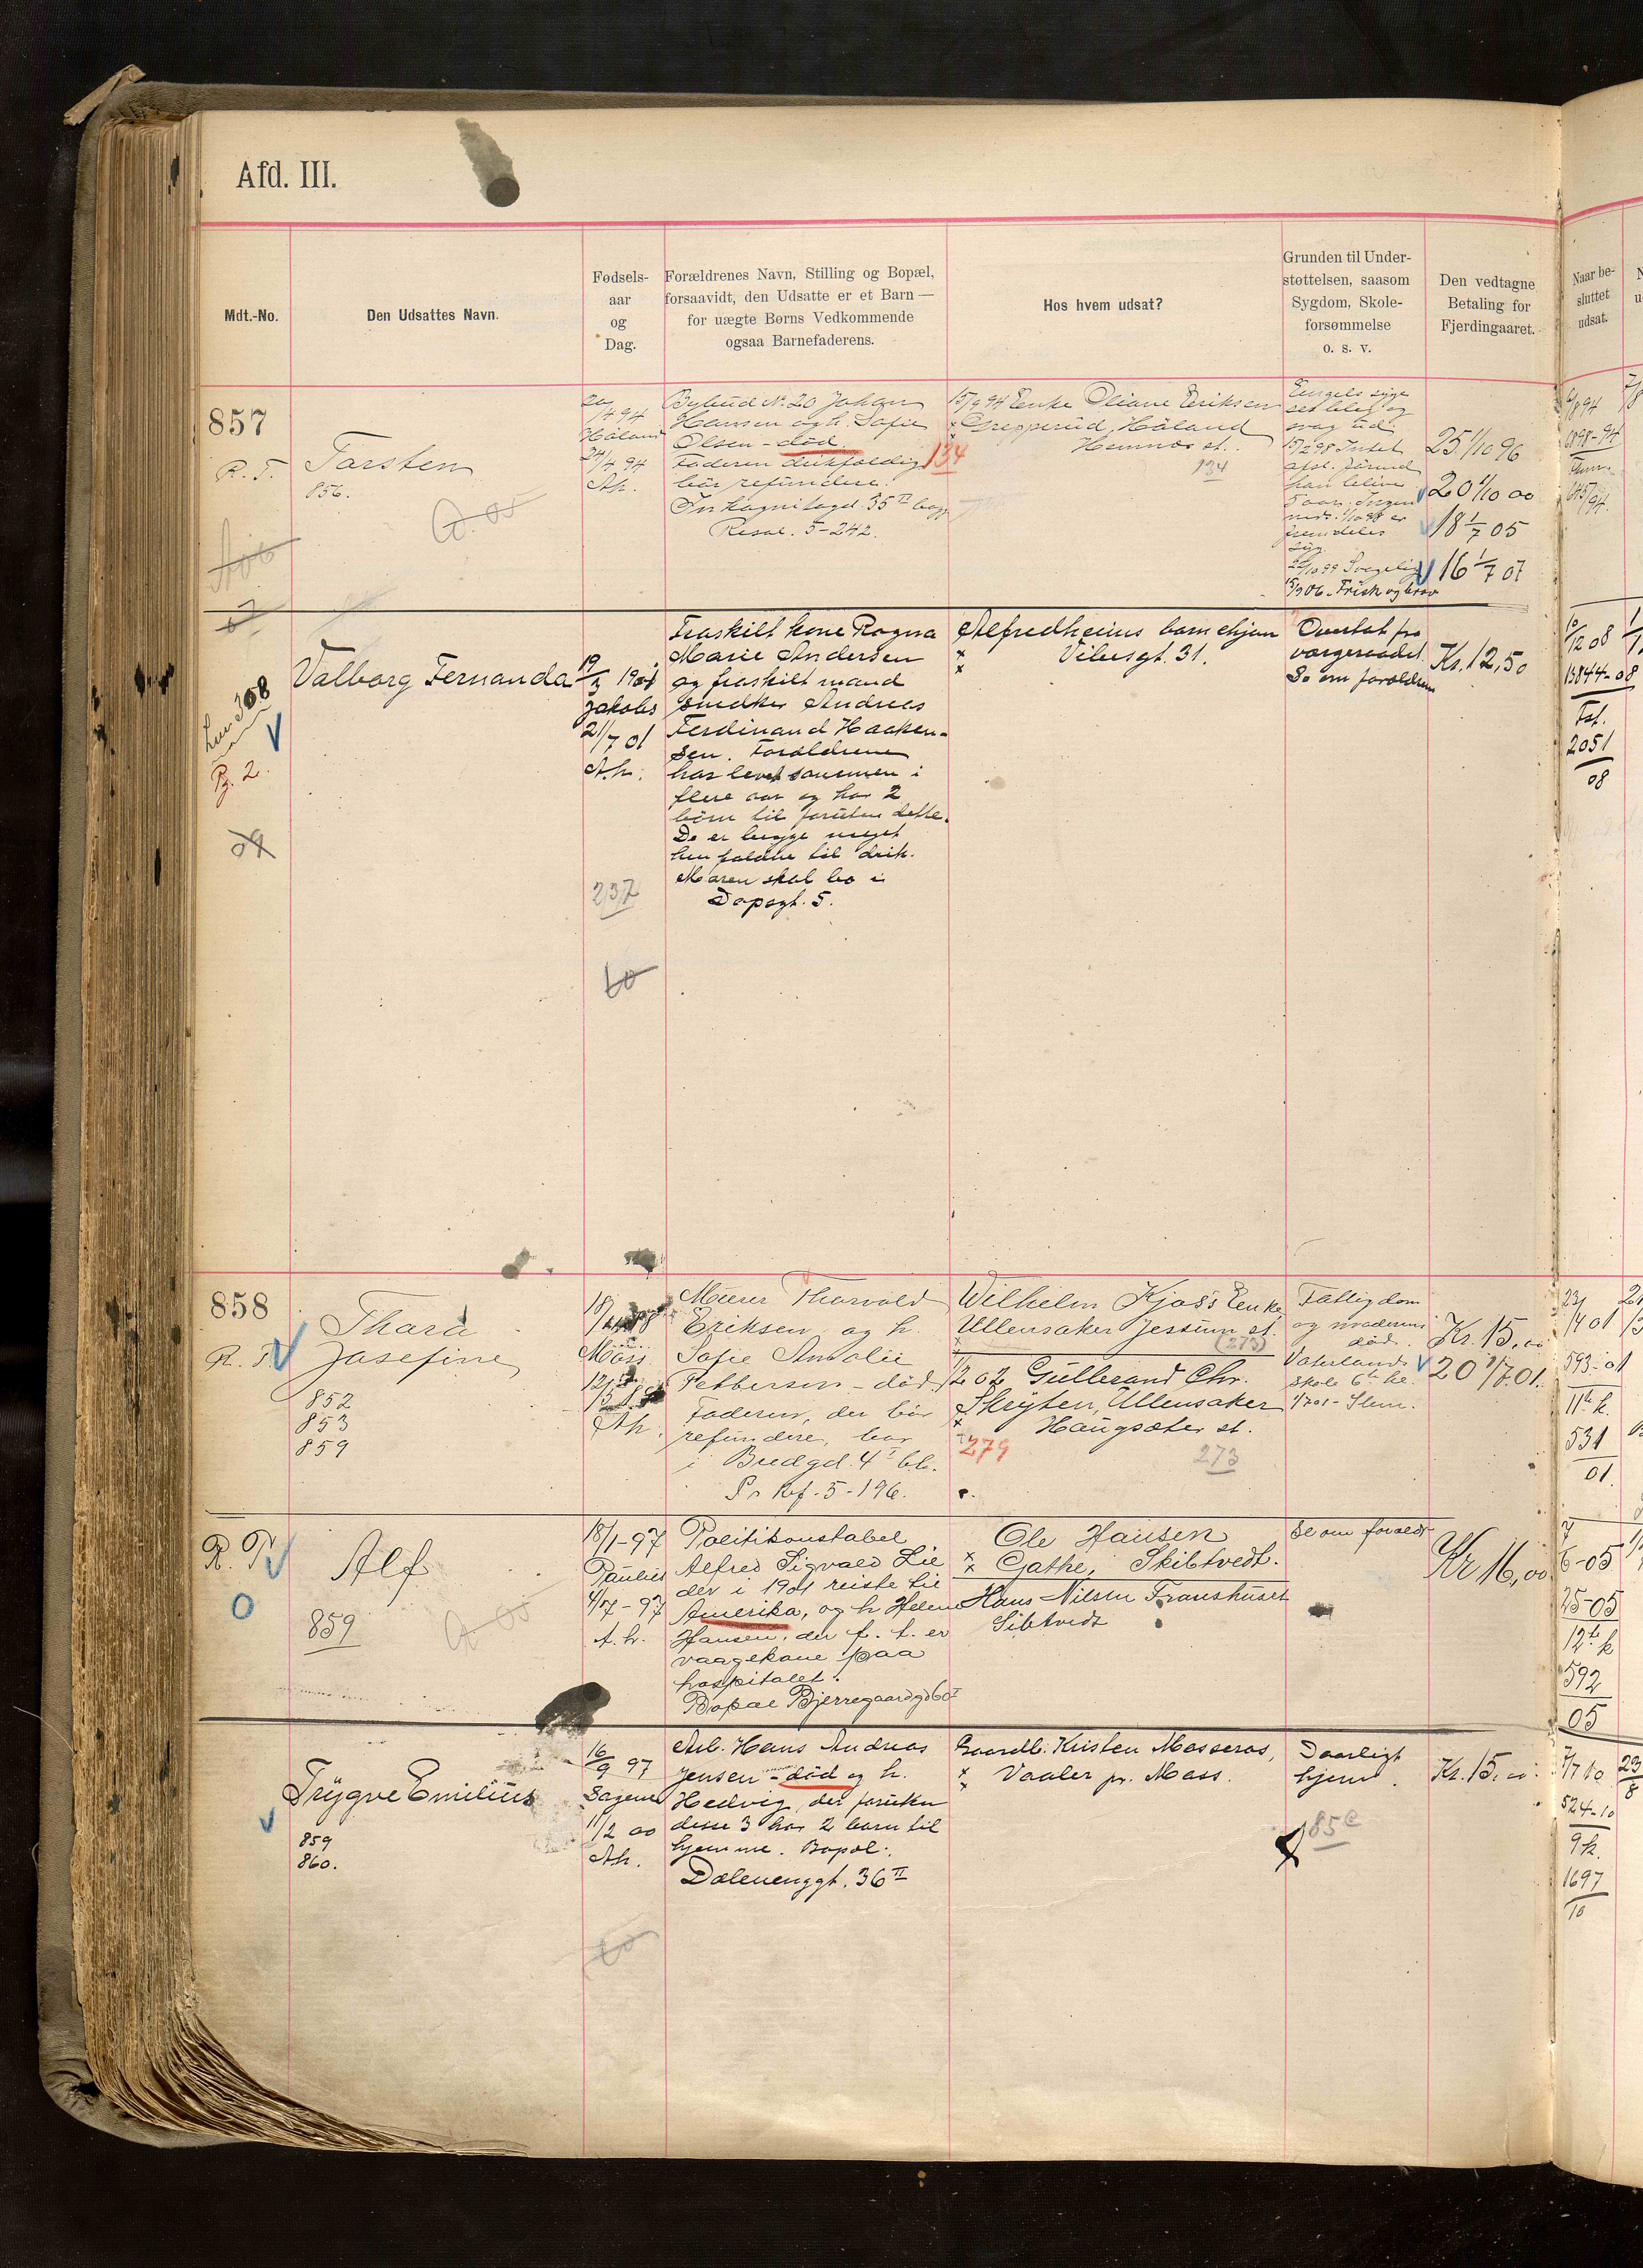 Afd. III.
Mdt.-No.
Den Udsattes Navn.
Fødsels-
aar
og
Dag.
Forældrenes Navn, Stilling og Bopæl,
forsaavidt, den Udsatte er et Barn —
for uægte Børns Vedkommende
ogsaa Barnefaderens.
Hos hvem udsat?
Grunden til Under-
støttelsen, saasom
Sygdom, Skole-
forsømmelse
o. s. v.
Den vedtagne
Betaling for
Fjerdingaaret.
Naar be-
sluttet
udsat.
857
R. T.
Torsten
856.
20/4 94
Høland
24/4 94
Ah.
Bybud No. 20 Johan
Hansen og h. Sofie
Olsen - død.
Faderen drikfældig
bør refundere.
Inkognitogd. 35 II bag
Resol. 5-242.
134
15/9 94 Enke Oliane Eriksen
Grepperud, Høland
Hemnæs st.
134
Engels syge
ser bleg og
svag ud
25 1/10 96
20 1/10 00
18 1/7 05
16 1/7 07
15/9 06. Frisk og brav
Valborg Fernanda
Pg. 2.
19/3 1901
Jakobs
21/7 01
A.h.
237
Fraskilt kone Ragna
Marie Andersen
og fraskilt mand
snedker Andreas
Ferdinand Haaken-
sen. Forældrene
har levet sammen i
flere aar og har 2
børn til foruten dette.
De er begge meget
hen faldne til drik.
Moren skal bo i
Dopsgt. 5.
Alfredheims barnehjem
Vibesgt. 31.
Overtat fra
vergeraadet
Se om forældrene
Kr. 12,50
10/12 08
13844-08
Taf.
2051
08
858
R. T.
Thora
Josefine
852
853
859
Moss
Ah.
Murer Thorvald
Eriksen og h.
Sofie Amalie
Pettersen - død.
Faderen, der bør
refundere, bor
i Bredgd. 4 I bl.
Pr Rf. 5-196.
Wilhelm Kjos's Enke
Ullensaker Jessum st.
(273)
1/2 02 Gulbrand Chr.
Skryten, Ullensaker
Haugsæter st.
279
273
Fattigdom
og moderens
død.
Vaterlands
skole 6te kl.
Kr. 15,00
20 1/7 01.
23/4 01
593-01
11te k.
531
01
R. T.
Alf
859
18/1-97
Paulus
4/7-97
A. h.
Politikonstabel
Alfred Sigvald Lie
der i 1901 reiste til
Amerika, og h. Helene
Hansen, der f. t. er
vaagekone paa
hospitalet.
Bopæl Bjerregaardsgd 60 I
Ole Hansen
Gathe, Skibtvedt.
Hans Nilsen Franshuset
Sibtvedt
Se om forældr
Kr 16,00
7/6-05
25-05
12te k
592
05
Trygve Emilius
859
860.
16/9 97
Sagene
11/2 00
Ah.
Arb. Hans Andreas
Jensen - død og h.
Hedvig, der foruten
disse 3 har 2 barn til
hjemme. Bopæl:
Dælenenggt. 36 II
Gaardb. Kristen Masseros,
Vaaler pr. Moss.
Daarligt
hjem.
85
Kr. 15,00.
7/7 10
524-10
9 k.
1697
10